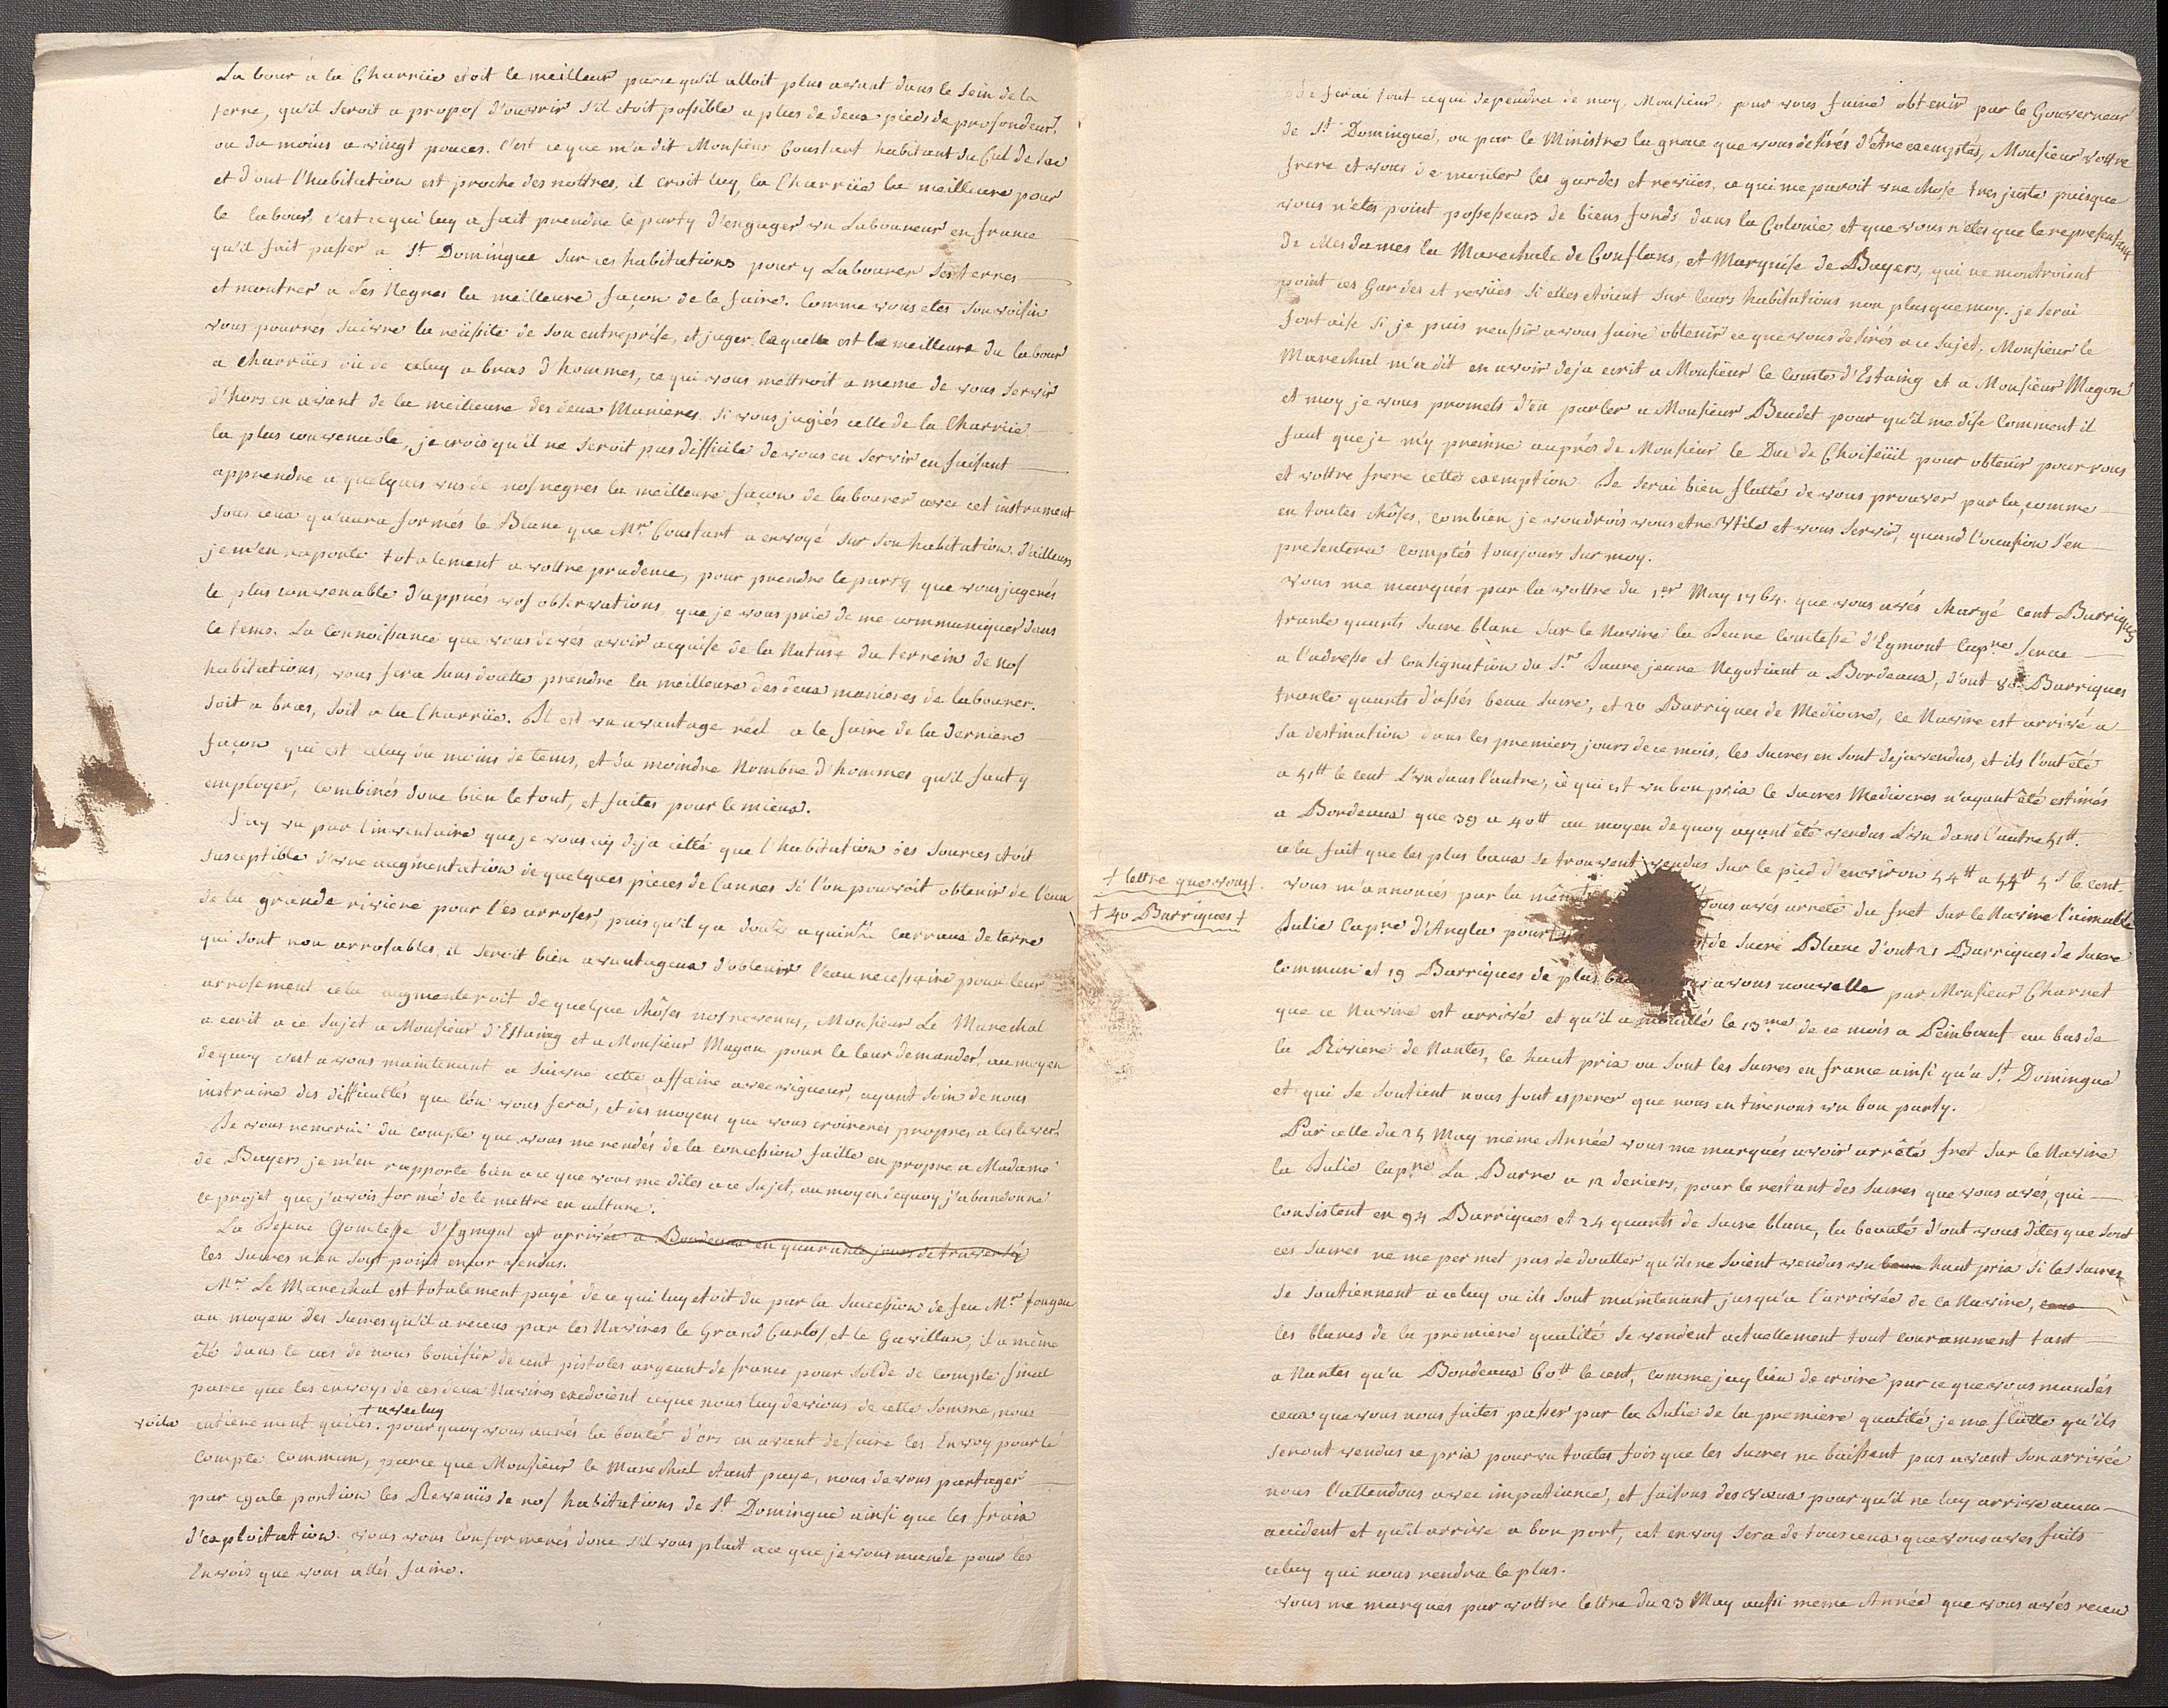 La bour a la Charrüe etoit le meilleur parce qu'il alloit plus avant dans le sein de la
terre, qu'il seroit a propos d'ouvrir s'il etoit possible a plus de deux pieds de profondeur,
ou du moins a vingt pouces. C'est ce que m'a dit Monsieur Coustart habitant du Cul de Sac
et d'ont l'habitation est proche des nottres, il croit luy, la Charrüe la meilleure pour
le labour, c'est ce qui luy a fait prendre le party d'engager un Laboureur en france
qu'il fait passer a St Domingue sur ses habitations pour y Labourer ses terres
et montrer a ses Negres la meilleure façon de le faire. Comme vous etes son voisin
vous pourrés suivre la reüssite de son entreprise, et juger laquelle est la meilleure du labour
a Charrües ou de celuy a bras d'hommes, ce qui vous mettroit a meme de vous servir
d'hors en avant de la meilleure des deux Manieres. si vous jugiés celle de la Charrüe
la plus convenable, je crois qu'il ne seroit pas difficile de vous en servir en faisant
apprendre a quelques uns de nos negres la meilleure façon de labourer avec cet instrument
sous ceux qu'aura formés le Blanc que Mr. Coustart a envoyé sur son habitation. d'ailleurs
je m'en raporte totalement a vottre prudence, pour prendre le party que vous jugerés
le plus convenable d'apprés vos observations, que je vous prie de me communiquer dans
le tems. La Connoissance que vous devés avoir acquise de la Nature du terrein de nos
habitations, vous fera sans doutte prendre la meilleure des deux manieres de labourer.
soit a bras, soit a la Charrüe. Il est un avantage réel a le faire de la derniere
façon qui est celuy du moins de tems, et du moindre Nombre d'hommes qu'il faut y
employer, Combinés donc bien le tout, et faites pour le mieux.
J'ay vu par l'inventaire que je vous ay deja cité que l'habitation des Sources etoit
susceptible d'une augmentation de quelques pieces de Cannes si l'on pouvoit obtenir de l'eau
de la grande riviere pour l'es arroser, puis qu'il y a douze a quinze Carraux de terre
qui sont non arrosables, il seroit bien avantageux d'obtenir l'eau necessaire pour leur
arrosement cela augmenteroit de quelque chôses nos revenus, Monsieur Le Marechal
a ecrit a ce sujet a Monsieur d'Estaing et a Monsieur Magon pour le leur demander, au moyen
de quoy c'est a vous maintenant a suivre cette affaire avec vigueur, ayant soin de nous
instruire des difficultés que l'ón vous fera, et des moyens que vous croireres propres a les lever.
Je vous remercie du compte que vous me rendés de la concession faitte en propre a Madame
de Bayers je m'en rapporte bien a ce que vous me dites a ce sujet, au moyen dequoy j'abandonne
le projet que j'avois formé de le mettre en culture.
La Jeune Comtesse d'Egmont est arrivée a Bordeaux en quarante jours de traversée
les sucres n'en sont point encor vendus.
Mr. Le Marechal est totalement payé de ce qui luy etoit du par la succession de feu Mr. fougeu
au moyen des sucres qu'il a receus par les Navires le Grand Carlos, et le Gavillan, il a même
été dans le cas de nous bonifier de cent pistoles argeant de france pour solde de compte final
parce que les envoys de ces deux Navires exedoient ce que nous luy devions de cette somme, nous
voila entierement quites + avec luy. pourquoy vous aurés la bonté d'ors en avant de faire les Envoy pour le
Compte Commun, parce que Monsieur le Marechal etant payé, nous devons partager
par egale portion les Revenüs de nos habitations de St Domingue ainsi que les fraix
d'exploitation. vous vous conformerés donc s'il vous plait a ce que je vous mande pour les
Envois que vous allés faire.
Je ferai tout ce qui dependra de moy, Monsieur, pour vous faire obtenir par le Gouverneur
de St Domingue, ou par le Ministre la grace que vous desirés d'être exemptés, Monsieur vottre
frere et vous de monter les gardes et revües, ce qui me paroit une chose tres juste puisque
vous n'etes point possesseurs de biens fonds dans la Colonie et que vous n'étes que le representant
de Mesdames la Marechale de Conflans, et Marquise de Bayers, qui ne monteroient
point ces Gardes et revües si elles etoient sur leurs habitations non plus que moy. je serai
fort aise si je puis reussir a vous faire obtenir ce que vous desirés a ce sujet, Monsieur le
Marechal m'a dit en avoir deja ecrit a Monsieur le Comte d'Estaing et a Monsieur Magon
et moy je vous promets d'en parler a Monsieur Beudet pour qu'il me dise Comment il
faut que je m'y prenne auprés de Monsieur le Duc de Choiseüil pour obtenir pour vous
et vottre frere cette exemption. Je serai bien flatté de vous prouver par la, comme
en toutes chôses, combien je voudrois vous etre Utile et vous servir, quand l'occasion s'en
presentera Comptés tousjours sur moy.
Vous me marqués par la vottre du 1er May 1764. que vous avés chargé Cent Barriques
trante quarts sucre blanc sur le Navire la Jeune Comtesse d'Egmont Capne
a l'adresse et Consignation du Sr. jeune Negotient a Bordeaux, d'ont 80 Barriques
trante quarts d'assés beau sucre, et 20 Barriques de Mediocre, le Navire est arrivé a
sa destination dans les premiers jours de ce mois, les sucres en sont deja vendus, et ils l'ont été
a 51tt le cent L'un dans l'autre, ce qui est un bon prix le sucres Mediocres n'ayant été estimés
a Bordeaux que 39 a 40tt au moyen de quoy ayant été vendus L'un dans l'autre 51tt.
cela fait que les plus baux se trouvent vendus sur le pied d'environ 54tt a 54tt 5s le cent.
+ lettre que vous +
vous m'annoncés par la même + vous avés arreté du fret sur le Navire l'aimable
+ 40 Barriques +
Julie Capne d'Angla pour + de sucre Blanc d'ont 21 Barriques de sucre
Commun et 19 Barriques de plus avons nouvelle par Monsieur Charnet
que ce Navire est arrivé et qu'il a mouillé le 13me de ce mois a Peimbœuf au bas de
la Riviere de Nantes, le haut prix ou sont les sucres en france ainsi qu'a St Domingue
et qui se soutient nous font esperer que nous en tirerons un bon party.
Par celle du 25 May même Année vous me marqués avoir arrêté fret sur le Navire
la Julie Capne La Barre a 12 deniers, pour le restant des sucres que vous avés, qui
Consistent en 94 Barriques et 24 quarts de sucre blanc, la beauté d'ont vous dites que sont
ces sucres ne me permet pas de doutter qu'ils ne soient vendus un beau haut prix si les sucres
se soutiennent a celuy ou ils sont maintenant jusqu'a l'arrivée de ce Navire, ceux
les blancs de la premiere qualité se vendent actuellement tout couramment tant
a Nantes qu'a Bordeaux 60tt le cent, comme j'ay lieu de croire par ce que vous mandés
ceux que vous nous faites passer par la Julie de la premiere qualité, je me flatte qu'ils
seront vendus ce prix pourvu toutes fois que les sucres ne baissent pas avant son arrivée
nous l'attendons avec impatiance, et faisons des vœux pour qu'il ne luy arrive aucun
accident et qu'il arrive a bon port, cet envoy sera de tous ceux que vous avés faits
celuy qui nous rendra le plus.
vous me marques par vottre lettre du 23 May aussi meme Année que vous avés receu